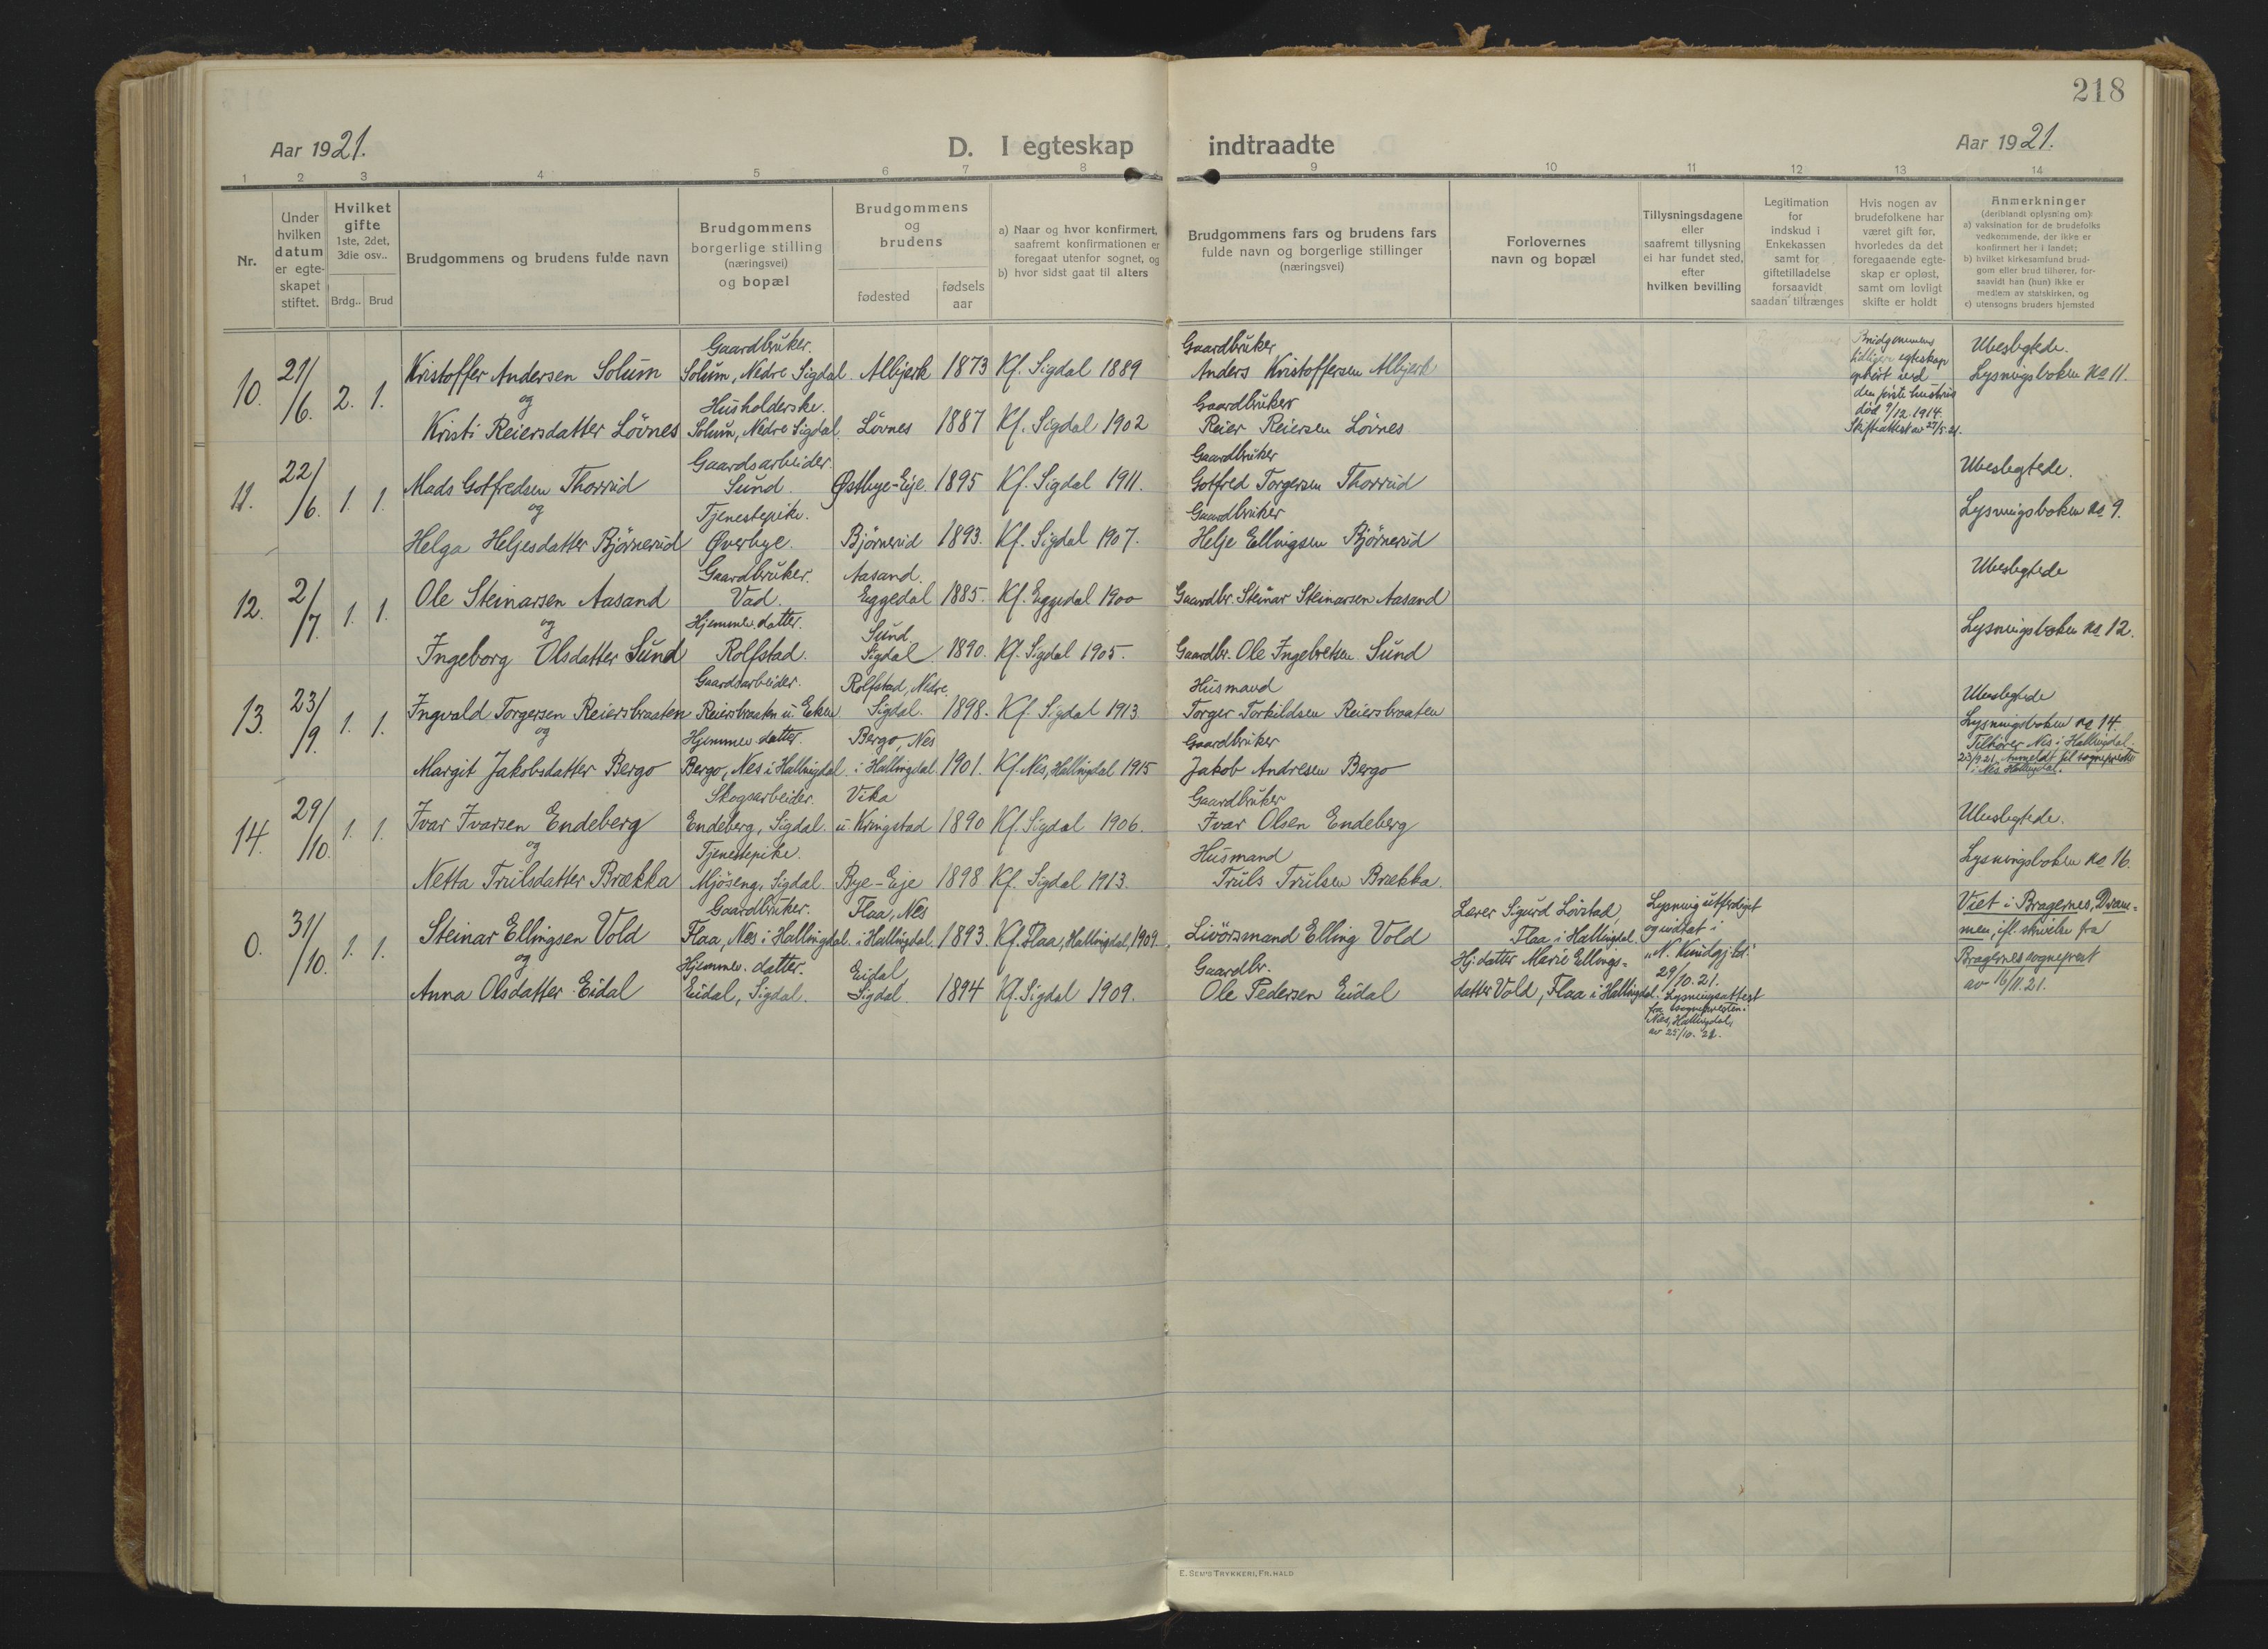 218
Aar 1921.
D. I egteskap indtraadte
Aar 1921.
1 2 3 4 5 6 7 8 9 10 11 12 13 14
Nr.
Under
hvilken
datum
er egte-
skapet
stiftet.
Hvilket
gifte
1ste, 2det,
3die osv..
Brdg.. Brud
Brudgommens og brudens fulde navn
Brudgommens
borgerlige stilling
(næringsvei)
og bopæl
Brudgommens
og
brudens
fødested
fødsels
aar
a) Naar og hvor konfirmert,
saafremt konfirmationen er
foregaat utenfor sognet, og
b) hvor sidst gaat til alters
Brudgommens fars og brudens fars
fulde navn og borgerlige stillinger
(næringsvei)
Forlovernes
navn og bopæl
Tillysningsdagene
eller
saafremt tillysning
ei har fundet sted,
efter
hvilken bevilling
Legitimation
for
indskud i
Enkekassen
samt for
giftetilladelse
forsaavidt
saadan tiltrænges
Hvis nogen av
brudefolkene har
været gift før,
hvorledes da det
foregaaende egte-
skap er opløst,
samt om lovligt
skifte er holdt
Anmerkninger
(deriblandt oplysning om):
a) vaksination for de brudefolks
vedkommende, der ikke er
konfirmert her i landet;
b) hvilket kirkesamfund brud-
gom eller brud tilhører, for-
saavidt han (hun) ikke er
medlem av statskirken, og
c) utensogns bruders hjemsted
10. 21/6. 2. 1.
Kristoffer Andersen Solum
og
Kristi Reiersdatter Lövnes
Gaardbruker.
Solum, Nedre Sigdal.
Husholderske.
Solum, Nedre Sigdal.
Albjerk 1873 Kf. Sigdal 1889
Lövnes 1887 Kf. Sigdal 1902
Gaardbruker
Anders Kristoffersen Albjerk
Gaardbruker
Reier Reiersen Lövnes
Brudgommens
tidligere egteskap
ophört ved
den förste hustrus
död 9/12.1914.
Skifteattest av 27/5.21.
Ubeslegtede.
Lysningsboken no 11.
11. 22/6. 1. 1.
Mads Gotfredsen Thorrud
og
Helga Heljesdatter Björnerud
Gaardsarbeider.
Sund.
Tjenestepike.
Øverbye.
Østbye-Eje 1895 Kf. Sigdal 1911.
Björnerud 1893. Kf. Sigdal 1907.
Gaardbruker
Gotfred Torgersen Thorrud
Gaardbruker
Helje Ellingsen Björnerud
Ubeslegtede.
Lysningsboken no 9.
12. 2/7. 1. 1.
Ole Steinarsen Aasand
og
Ingeborg Olsdatter Sund
Gaardbruker.
Vad.
Hjemmev. datter.
Rolfstad.
Aasand.
Eggedal 1885. Kf. Eggedal 1900
Sund
Sigdal 1890. Kf. Sigdal 1905.
Gaardbr. Steinar Steinarsen Aasand
Gaardbr. Ole Ingebretsen Sund
Ubeslegtede
Lysningsboken no 12.
13. 23/9. 1. 1.
Ingvald Torgersen Reiersbraaten
og
Margit Jakobsdatter Bergo
Gaardsarbeider.
Reiersbraaten u. Eken
Hjemmev. datter.
Bergo, Nes i Hallingdal.
Rolfstad, Nedre
Sigdal. 1898. Kf. Sigdal 1913.
Bergo, Nes
i Hallingdal 1901. Kf. Nes, Hallingdal 1915
Husmand
Torger Torkildsen Reiersbraaten
Gaardbruker
Jakob Andresen Bergo
Ubeslegtede
Lysningsboken no 14.
Tilhörer Nes i Hallingdal.
23/9 21 Anmeldt til sogneprest
i Nes Hallingdal.
14. 29/10. 1. 1.
Ivar Ivarsen Endeberg
og
Netta Trulsdatter Brækka
Skogsarbeider.
Endeberg, Sigdal.
Tjenestepike.
Mjöseng, Sigdal.
Vika
u. Kringstad 1890 Kf. Sigdal 1906.
Bye-Eje 1898 Kf. Sigdal 1913.
Gaardbruker
Ivar Olsen Endeberg
Husmand
Truls Trulsen Brækka.
Ubeslegtede.
Lysningsboken no 16.
0. 31/10. 1. 1.
Steinar Ellingsen Vold
og
Anna Olsdatter Eidal
Gaardbruker.
Flaa, Nes i Hallingdal.
Hjemmev. datter.
Eidal, Sigdal.
Flaa, Nes
i Hallingdal. 1893. Kf. Flaa, Hallingdal, 1909.
Eidal,
Sigdal 1894 Kf. Sigdal 1909.
Elling Vold
Gaardbr.
Ole Pedersen Eidal
Lærer Sigurd Lövstad,
Flaa i Hallingdal.
Hj. datter Marie Ellings-
datter Vold, Flaa i Hallingdal.
Lysning utferdiget
og indtat i
"N. Kundgj.td."
29/10.21.
Lysningsattest
fra sognepresten i
Nes, Hallingdal,
av 25/10. 21.
Viet i Bragernes, Dram-
men, ifl. skrivelse fra
Bragernes sogneprest
av 16/11.21.
E. SEM'S TRYKKERI, FR.HALD